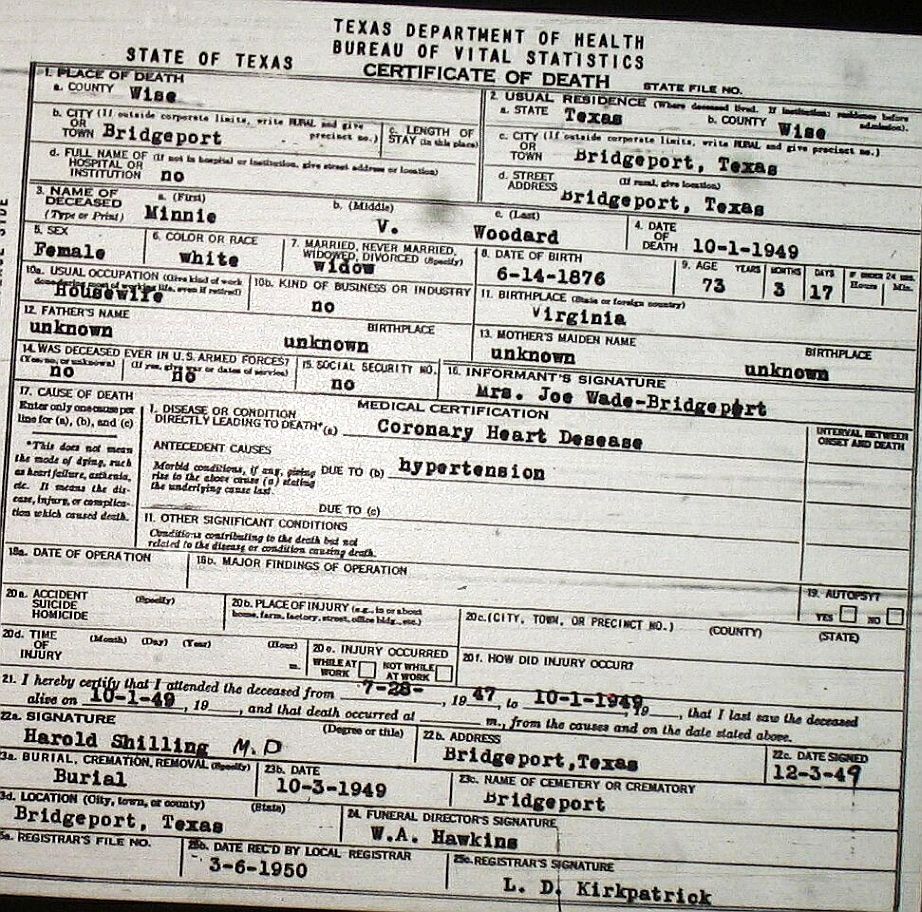 TEXAS DEPARTMENT OF HEALTH
BUREAU OF VITAL STATISTICS
STATE OF TEXAS
CERTIFICATE OF DEATH
STATE FILE NO.
1. PLACE OF DEATH
a. COUNTY Wise
2. USUAL RESIDENCE (Where deceased lived. If institution: residence before admission).
a. STATE Texas b. COUNTY Wise
b. CITY (If outside corporate limits, write RURAL and give precinct no.)
OR
TOWN Bridgeport
c. LENGTH OF STAY (in this place)
c. CITY (If outside corporate limits, write RURAL and give precinct no.)
OR
TOWN Bridgeport, Texas
d. FULL NAME OF HOSPITAL OR INSTITUTION (If not in hospital or institution, give street address or location)
no
d. STREET ADDRESS (If rural, give location)
Bridgeport, Texas
3. NAME OF DECEASED (Type or Print)
a. (First) Minnie
b. (Middle) V.
c. (Last) Woodard
4. DATE OF DEATH 10-1-1949
5. SEX
Female
6. COLOR OR RACE
white
7. MARRIED, NEVER MARRIED, WIDOWED, DIVORCED (Specify)
widow
8. DATE OF BIRTH
6-14-1876
9. AGE YEARS MONTHS DAYS IF UNDER 24 HRS. Hours Min.
73 3 17
10a. USUAL OCCUPATION (Give kind of work done during most of working life, even if retired)
Housewife
10b. KIND OF BUSINESS OR INDUSTRY
no
11. BIRTHPLACE (State or foreign country)
Virginia
12. FATHER'S NAME BIRTHPLACE
unknown unknown
13. MOTHER'S MAIDEN NAME BIRTHPLACE
unknown unknown
14. WAS DECEASED EVER IN U.S. ARMED FORCES?
(Yes, no, or unknown) (If yes, give war or dates of service)
no no
15. SOCIAL SECURITY NO.
no
16. INFORMANT'S SIGNATURE
Mrs. Joe Wade-Bridgeport
17. CAUSE OF DEATH
Enter only one cause per line for (a), (b), and (c)
*This does not mean the mode of dying, such as heart failure, asthenia, etc. It means the disease, injury, or complication which caused death.
MEDICAL CERTIFICATION
INTERVAL BETWEEN ONSET AND DEATH
1. DISEASE OR CONDITION DIRECTLY LEADING TO DEATH*(a) Coronary Heart Desease
ANTECEDENT CAUSES
Morbid conditions, if any, giving rise to the above cause (a) stating the underlying cause last.
DUE TO (b) hypertension
DUE TO (c)
11. OTHER SIGNIFICANT CONDITIONS
Conditions contributing to the death but not related to the disease or condition causing death.
18a. DATE OF OPERATION
18b. MAJOR FINDINGS OF OPERATION
19. AUTOPSY?
YES NO
20a. ACCIDENT SUICIDE HOMICIDE (Specify)
20b. PLACE OF INJURY (e.g., in or about home, farm, factory, street, office bldg., etc.)
20c. (CITY, TOWN, OR PRECINCT NO.) (COUNTY) (STATE)
20d. TIME OF INJURY (Month) (Day) (Year) (Hour) m.
20e. INJURY OCCURRED
WHILE AT WORK NOT WHILE AT WORK
20f. HOW DID INJURY OCCUR?
21. I hereby certify that I attended the deceased from 7-28-, 1947, to 10-1-1949, 19 , that I last saw the deceased
alive on 10-1-49, 19 , and that death occurred at m., from the causes and on the date stated above.
22a. SIGNATURE (Degree or title)
Harold Shilling M.D
22b. ADDRESS
Bridgeport,Texas
22c. DATE SIGNED
12-3-49
3a. BURIAL, CREMATION, REMOVAL (Specify)
Burial
23b. DATE
10-3-1949
23c. NAME OF CEMETERY OR CREMATORY
Bridgeport
3d. LOCATION (City, town, or county) (State)
Bridgeport, Texas
24. FUNERAL DIRECTOR'S SIGNATURE
W.A. Hawkins
5a. REGISTRAR'S FILE NO.
25b. DATE REC'D BY LOCAL REGISTRAR
3-6-1950
25c. REGISTRAR'S SIGNATURE
L. D. Kirkpatrick